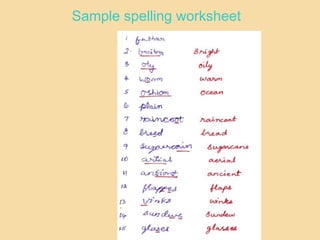 Sample spelling worksheet
1 further
2. Bright
3 oily oily
4 worm warm
5 oshion ocean
6 plain
7 raincoot raincoat
8 bread bread
9 sugarcain sugarcane
10 artial aerial
11 ansiont ancient
12 flapped flaps
13 winks winks
14 sundew
15 glases glasses